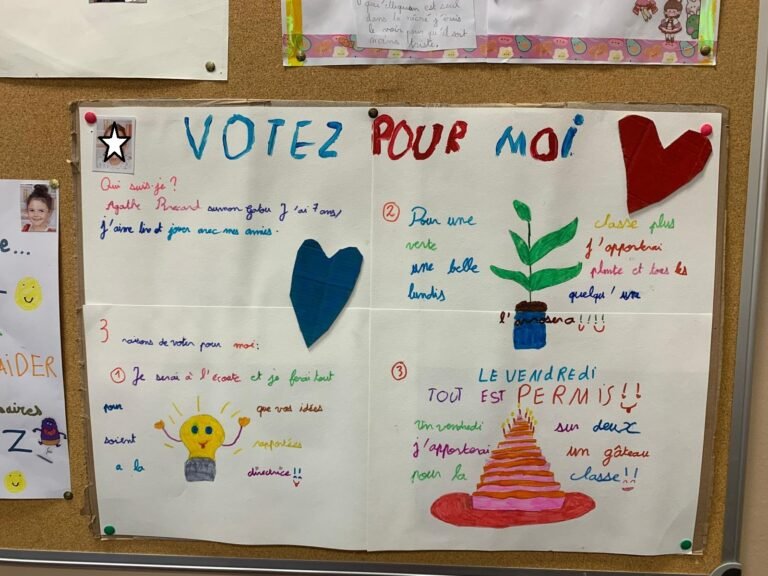 qu'un est seul
dans la récré j'irais
le voir pour qu'il soit
moins triste.
VOTEZ POUR MOI
Qui suis-je ?
Agathe surnom Gabou J'ai 7 ans,
j'aime lire et jouer avec mes amies.
3
raisons de voter pour moi :
① Je serai à l'écoute et je ferai tout
pour que vos idées
soient rapportées
a la directrice !!
② Pour une classe plus
verte j'apporterai
une belle plante et tous les
lundis quelqu'une
l'arrosera !!!!
③ LE VENDREDI
TOUT EST PERMIS !!
Un vendredi sur deux
j'apporterai un gâteau
pour la classe !!
e...
AIDER
saires
Z